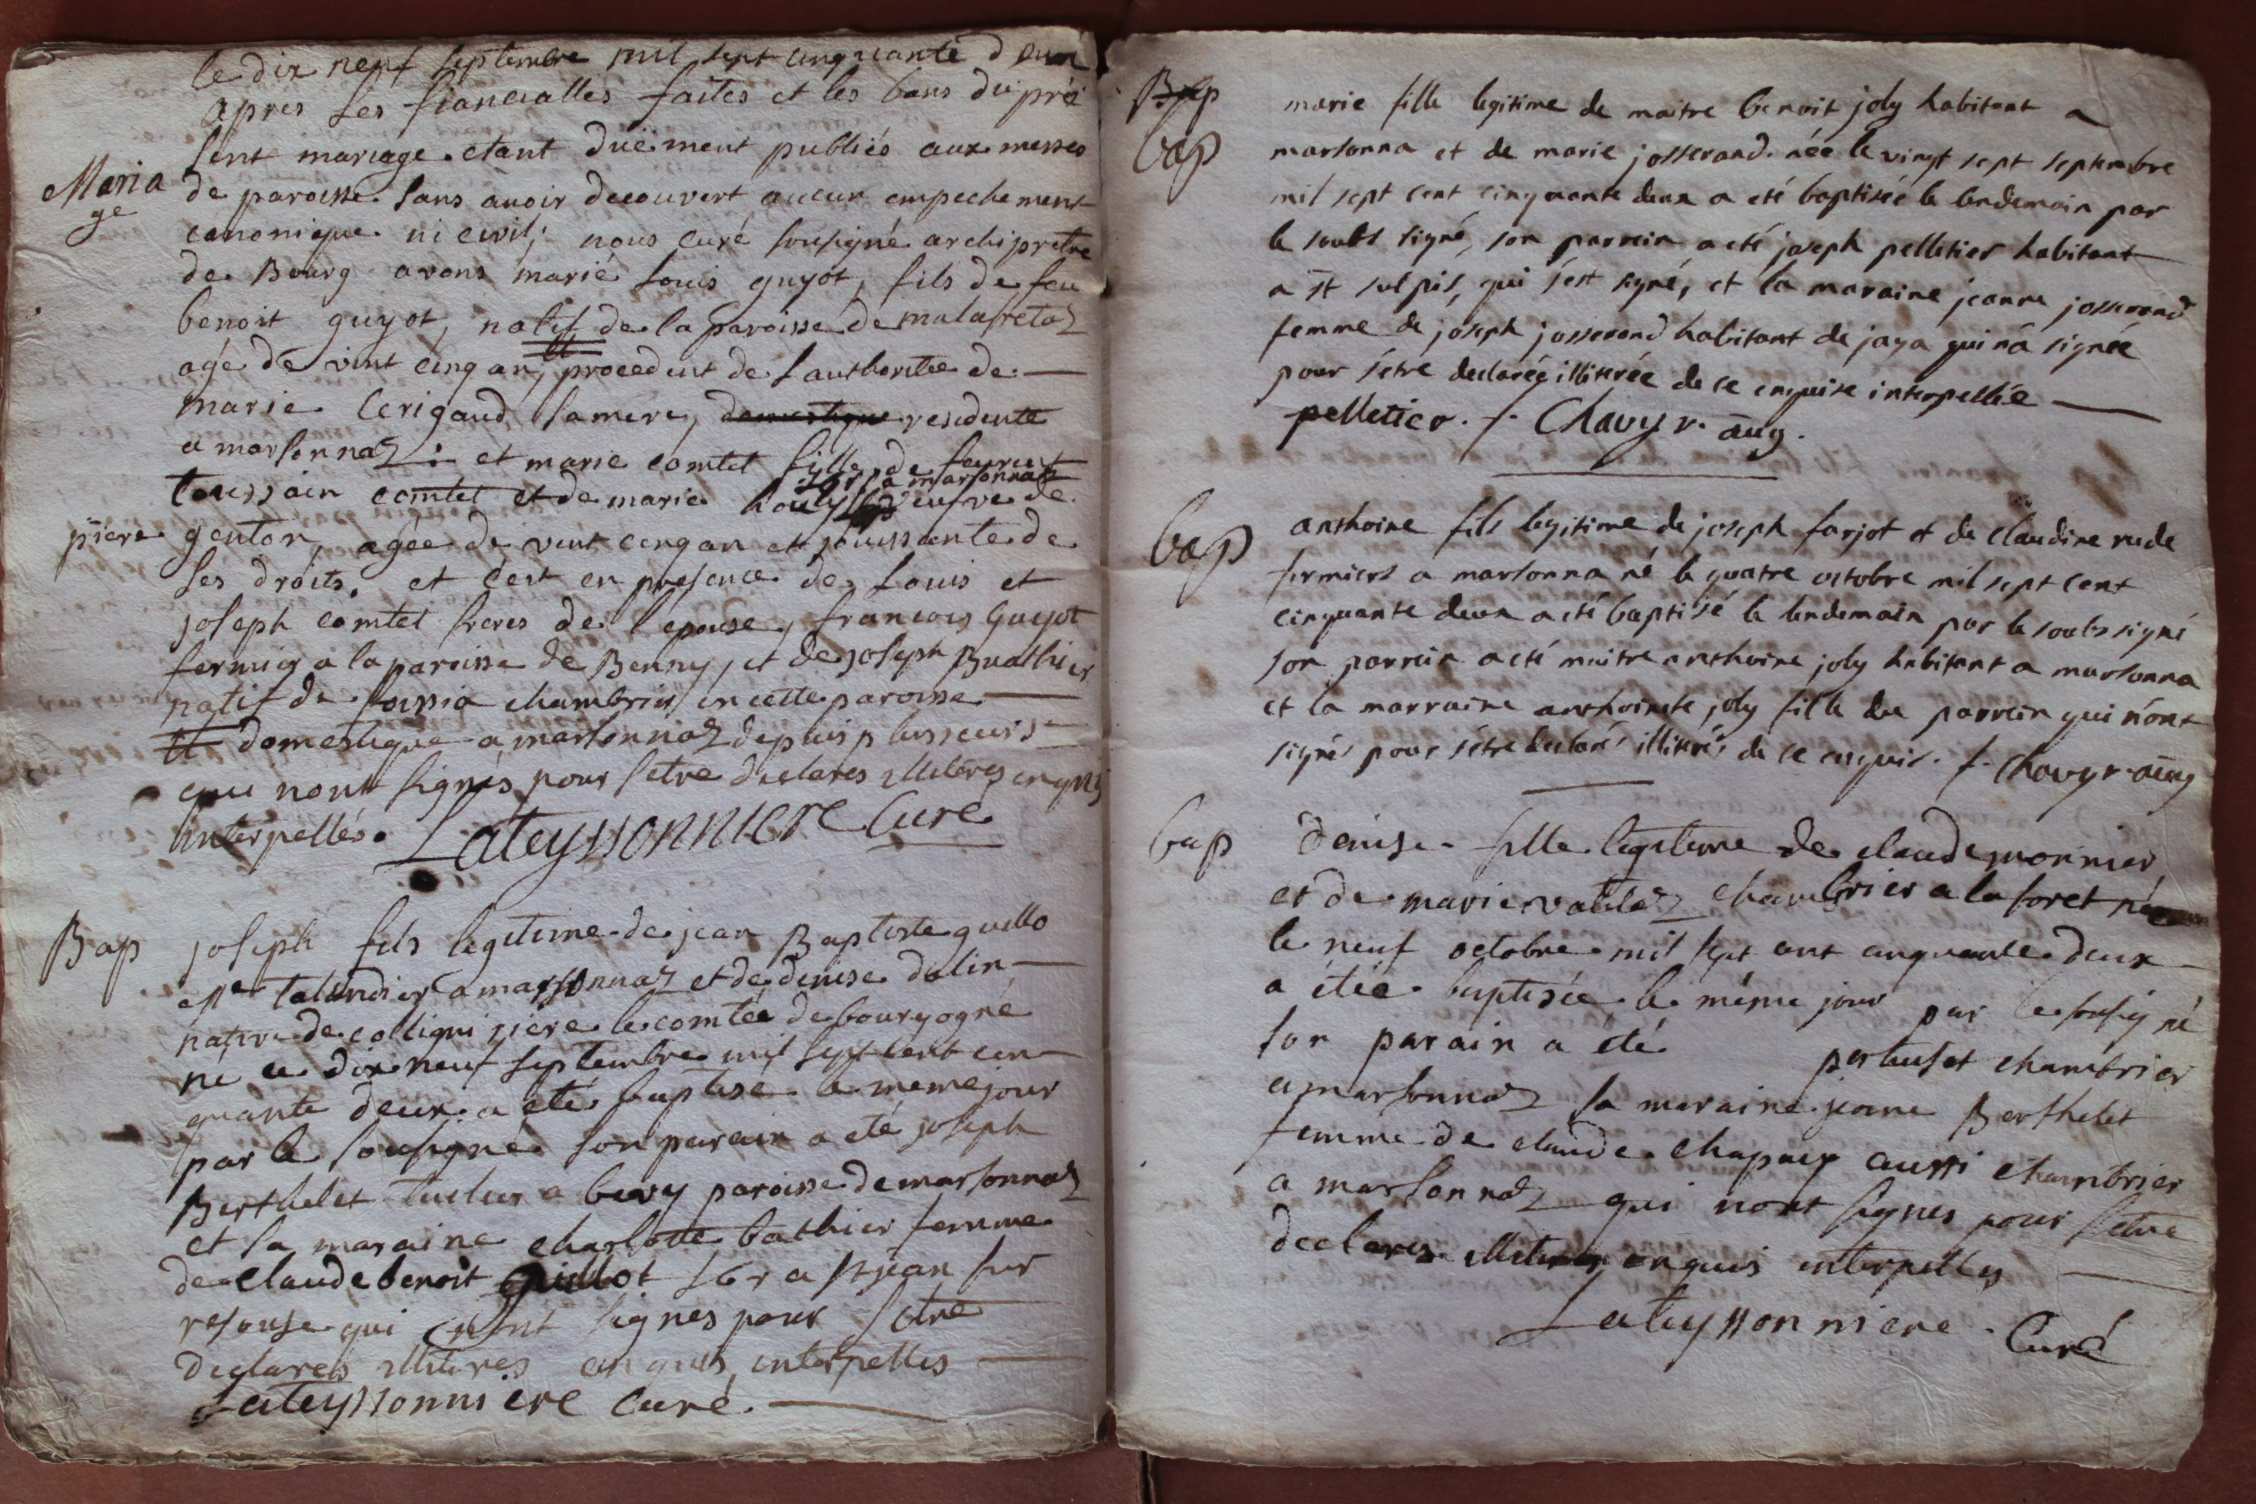 le dix neuf septembre mil sept cinquante deux
apres les fiancialles faites et les bans du pré
sent mariage etant düement publiés aux messes
Maria
ge
de paroisse sans avoir decouvert aucun empechement
canonique ni civil; nous curé sousigné archiprètre
de Bourg avons marié Louis guyot, fils de feu
benoit guyot, natif de la paroisse de malafretaz
agé de vint cinq an, procedent de l'authoritée de
marie Cerigaud, sa mere, domestique residente
a marsonnaz: et marie comtet fille de feu
a marsonnaz
toussain comtet et de marie veufve de
pierre genton, agée de vint cinq an et jouissante de
ses droits. et c'est en presence de Louis et
joseph comtet freres de l'epouse, francois Guyot
fermier a la paroisse de Benny, et de joseph Buathier
natif de foissia chambrier en cette paroisse
et domestique a marsonnaz depuis plusieurs
qui nont signés pour setre declares illiterés enquis
interpellés. Lateyssonniere Curé
Bap
joseph fils legitime de jean Baptiste guillo
talendier a marsonnaz et de denise dalin
native de colligni riere le comtée de bourgogne
né le dix neuf septembre mil sept cent cin
quante deux a eté baptisé le meme jour
par le sousigné son parain a eté joseph
Berthelet tueleur a bevy paroisse de marsonnaz
et la maraine charlotte bathier femme
de claude benoit Guillot a st jean sur
resouse qui nont signes pour setre
declares illiteres enquis, interpelles
Lateyssonniere curé.
Bap
bap
marie fille legitime de maitre benoit joly habitant a
marsonna et de marie josserand née le vingt sept septembre
mil sept cent cinquante deux a eté baptisée le lendemain par
le soubs signé, son parrein a eté joseph pelletier habitant
a st sulpis, qui s'est signé, et la maraine jeanne josserand
femme de joseph josserand habitant de jaya qui n'a signée
pour s'etre declarée illiterée de ce enquise interpellée
pelletier. f. Chavy r. aug.
bap
anthoine fils legitime de joseph farjot et de claudine rude
fermiers a marsonna né le quatre octobre mil sept cent
cinquante deux a eté baptisé le lendemain par le soubs signé
son parrein a eté maitre anthoine joly habitant a marsonna
et la marraine anthoinete joly fille du parrein qui n'ont
signés pour s'etre declarés illiterés de ce enquis. f. Chavy r. aug
bap
denise fille legitime de claude monnier
et de marie chambrier a la foret née
le neuf octobre mil sept cent cinquante deux
a étée baptisée le même jour par le sousigné
son parain a eté pertuset chambrier
a marsonnaz la maraine jeanne Berthelet
femme de claude chapuy aussi chambrier
a marsonnaz qui nont signes pour setre
declares illiteres enquis interpelles
Lateyssonniere. Curé